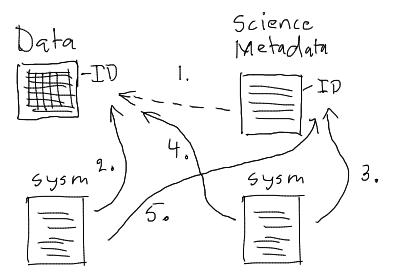 Data
Science
Metadata
-ID
1.
-ID
2.
4.
3.
sysm
sysm
5.